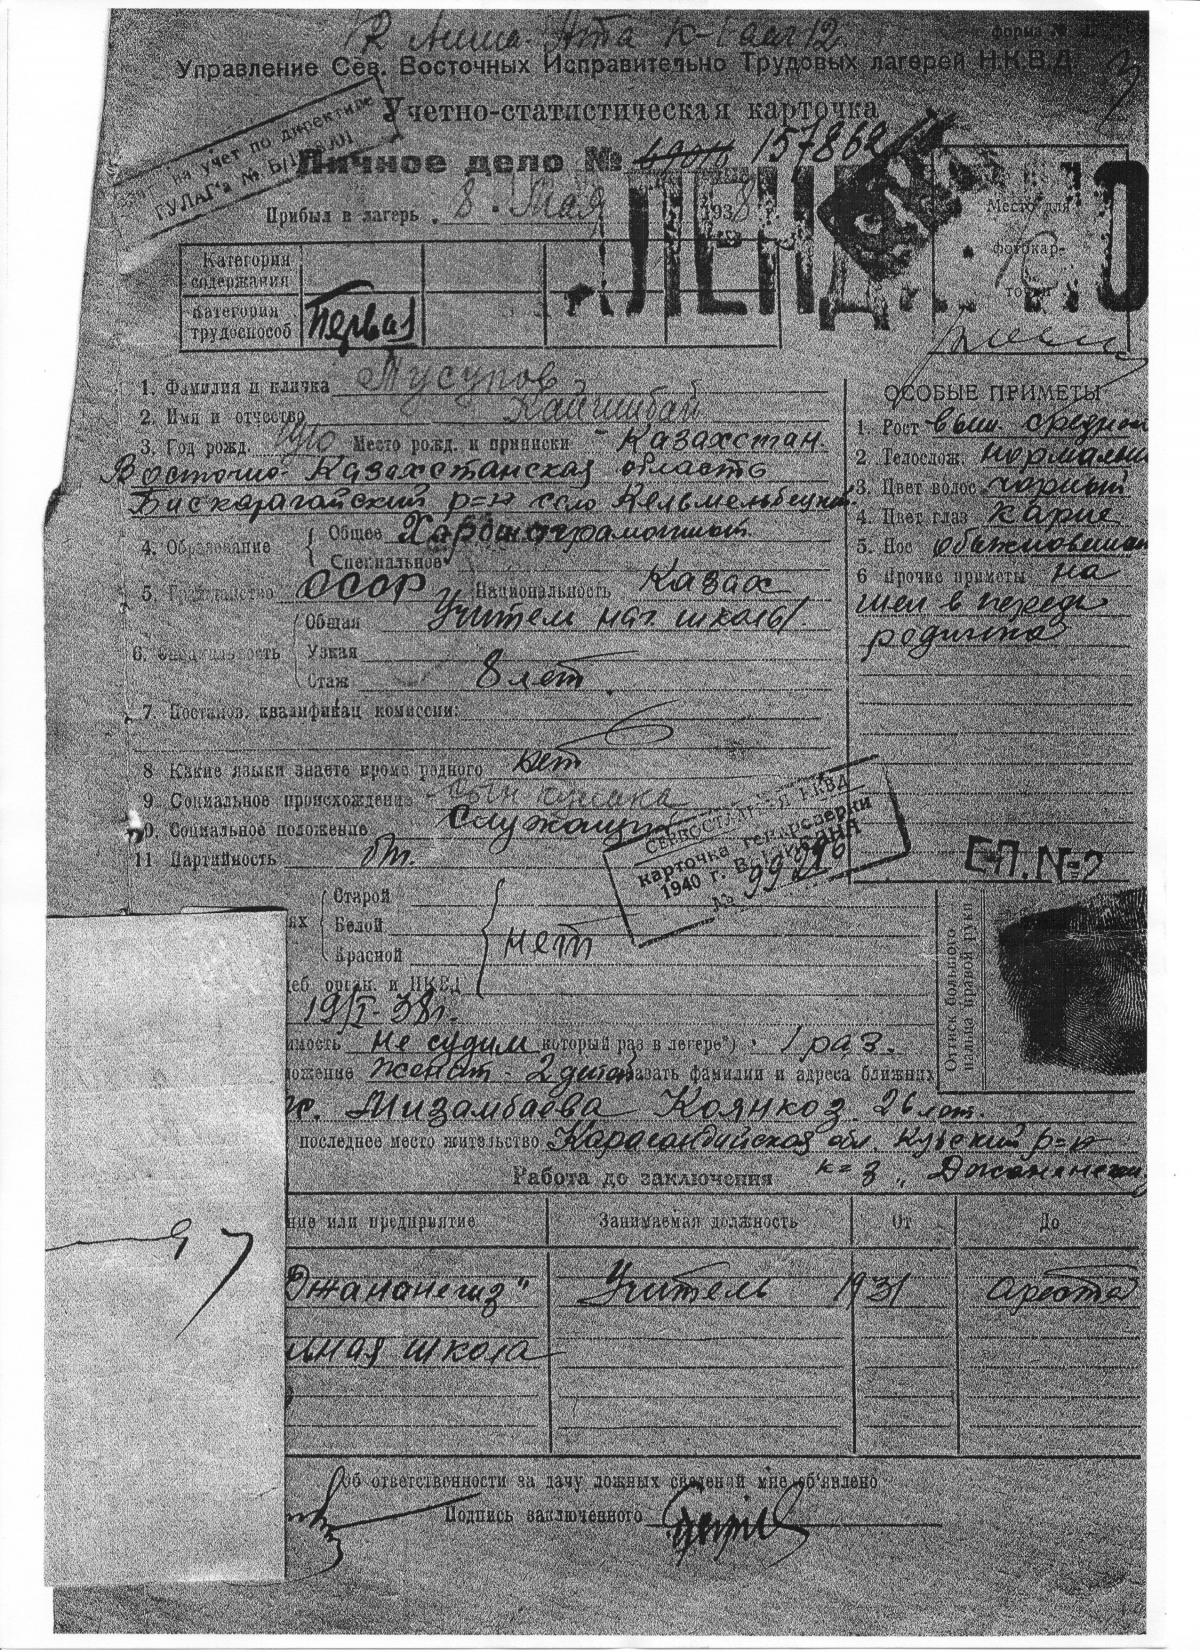 Алма-Ата К-1
форма №
Управление Сев. Восточных Исправительно Трудовых лагерей Н.К.В.Д.
Учетно-статистическая карточка
на учет по директиве
ГУЛАГ'а №
Личное дело № 157862
Прибыл в лагерь 8. Мая 1938 г.
Место для
фотокар-
точки
Категория
содержания
Категория
трудоспособ
Первая
1. Фамилия и кличка Жусупов
2. Имя и отчество
3. Год рожд. 1910 Место рожд. и приписки - Казахстан
Восточно-Казахстанская область
Бискарагайский р=н село
4. Образование Общее Хорошо грамотный
Специальное
5. Гражданство СССР Национальность Казах
6. Специальность Общая Учитель нач. школы
Узкая
Стаж 8 лет.
7. Постанов. квалификац комиссии:
8 Какие языки знаете кроме родного нет
9. Социальное происхождение - сын
10. Социальное положение Служащий
11 Партийность бп.
ОСОБЫЕ ПРИМЕТЫ
1. Рост выш. средней
2. Телослож. нормальн
3. Цвет волос чорный
4. Цвет глаз карие
5. Нос
6 Прочие приметы на
шеи в переди
родинка
СЕВВОСТЛАГ НКВД
карточка генпроверки
1940 г. ВЫПИСАНА
№ 99216
СП. №2
Старой
Белой
Красной
нет
ях
еб орган. и НКВД
19/I-38г.
мость не судим который раз в лагере*) 1 раз.
ложение женат - 2 детей казать фамилии и адреса ближних
ж. Мизамбаева Коянкоз 26 лет.
последнее место жительство Карагандийская обл. р=н
к=з „
Оттиск большого
пальца правой руки
Работа до заключения
ние или предприятие Занимаемая должность От До
Джананегиз" Учитель 1931 ареста
льная школа
Об ответственности за дачу ложных сведений мне об'явлено
Подпись заключенного